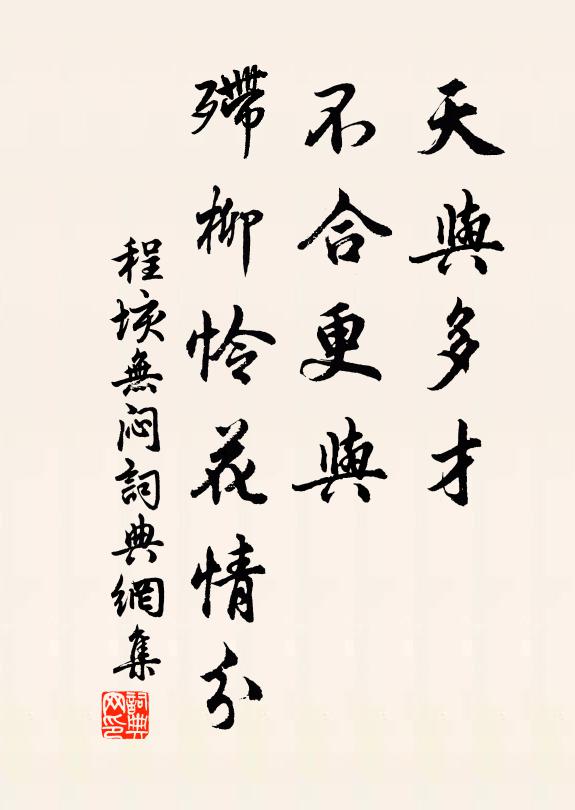 天與多才
不合更與
殢柳怜花情分
程垓無闷詞典網集
詞典网印